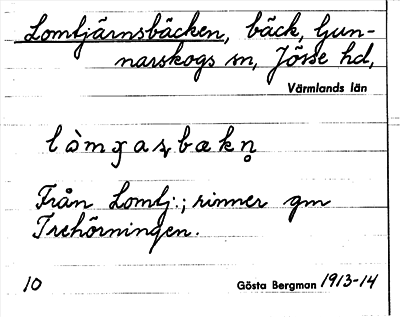 Lomtjärnsbäcken, bäck, Gun-
narskogs sn, Jösse hd,
Värmlands län
Från Lomtj.; rinner gm
Trehörningen.
10 Gösta Bergman 1913-14